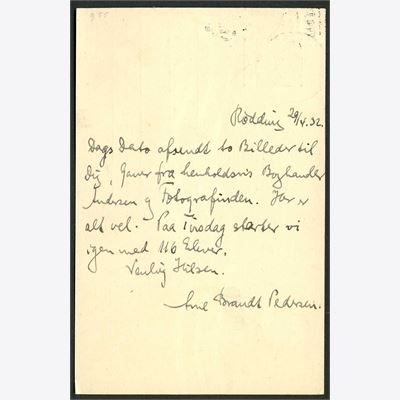 Rødding 29/4.32.
Dags Dato afsendt to Billeder til
Dig, Gaver fra henholdsvis Boghandler
Andersen og Fotografinden. Her er
alt vel. Paa Tirsdag starter vi
igen med 116 Elever.
Venlig Hilsen.
Arne Brandt Pedersen.